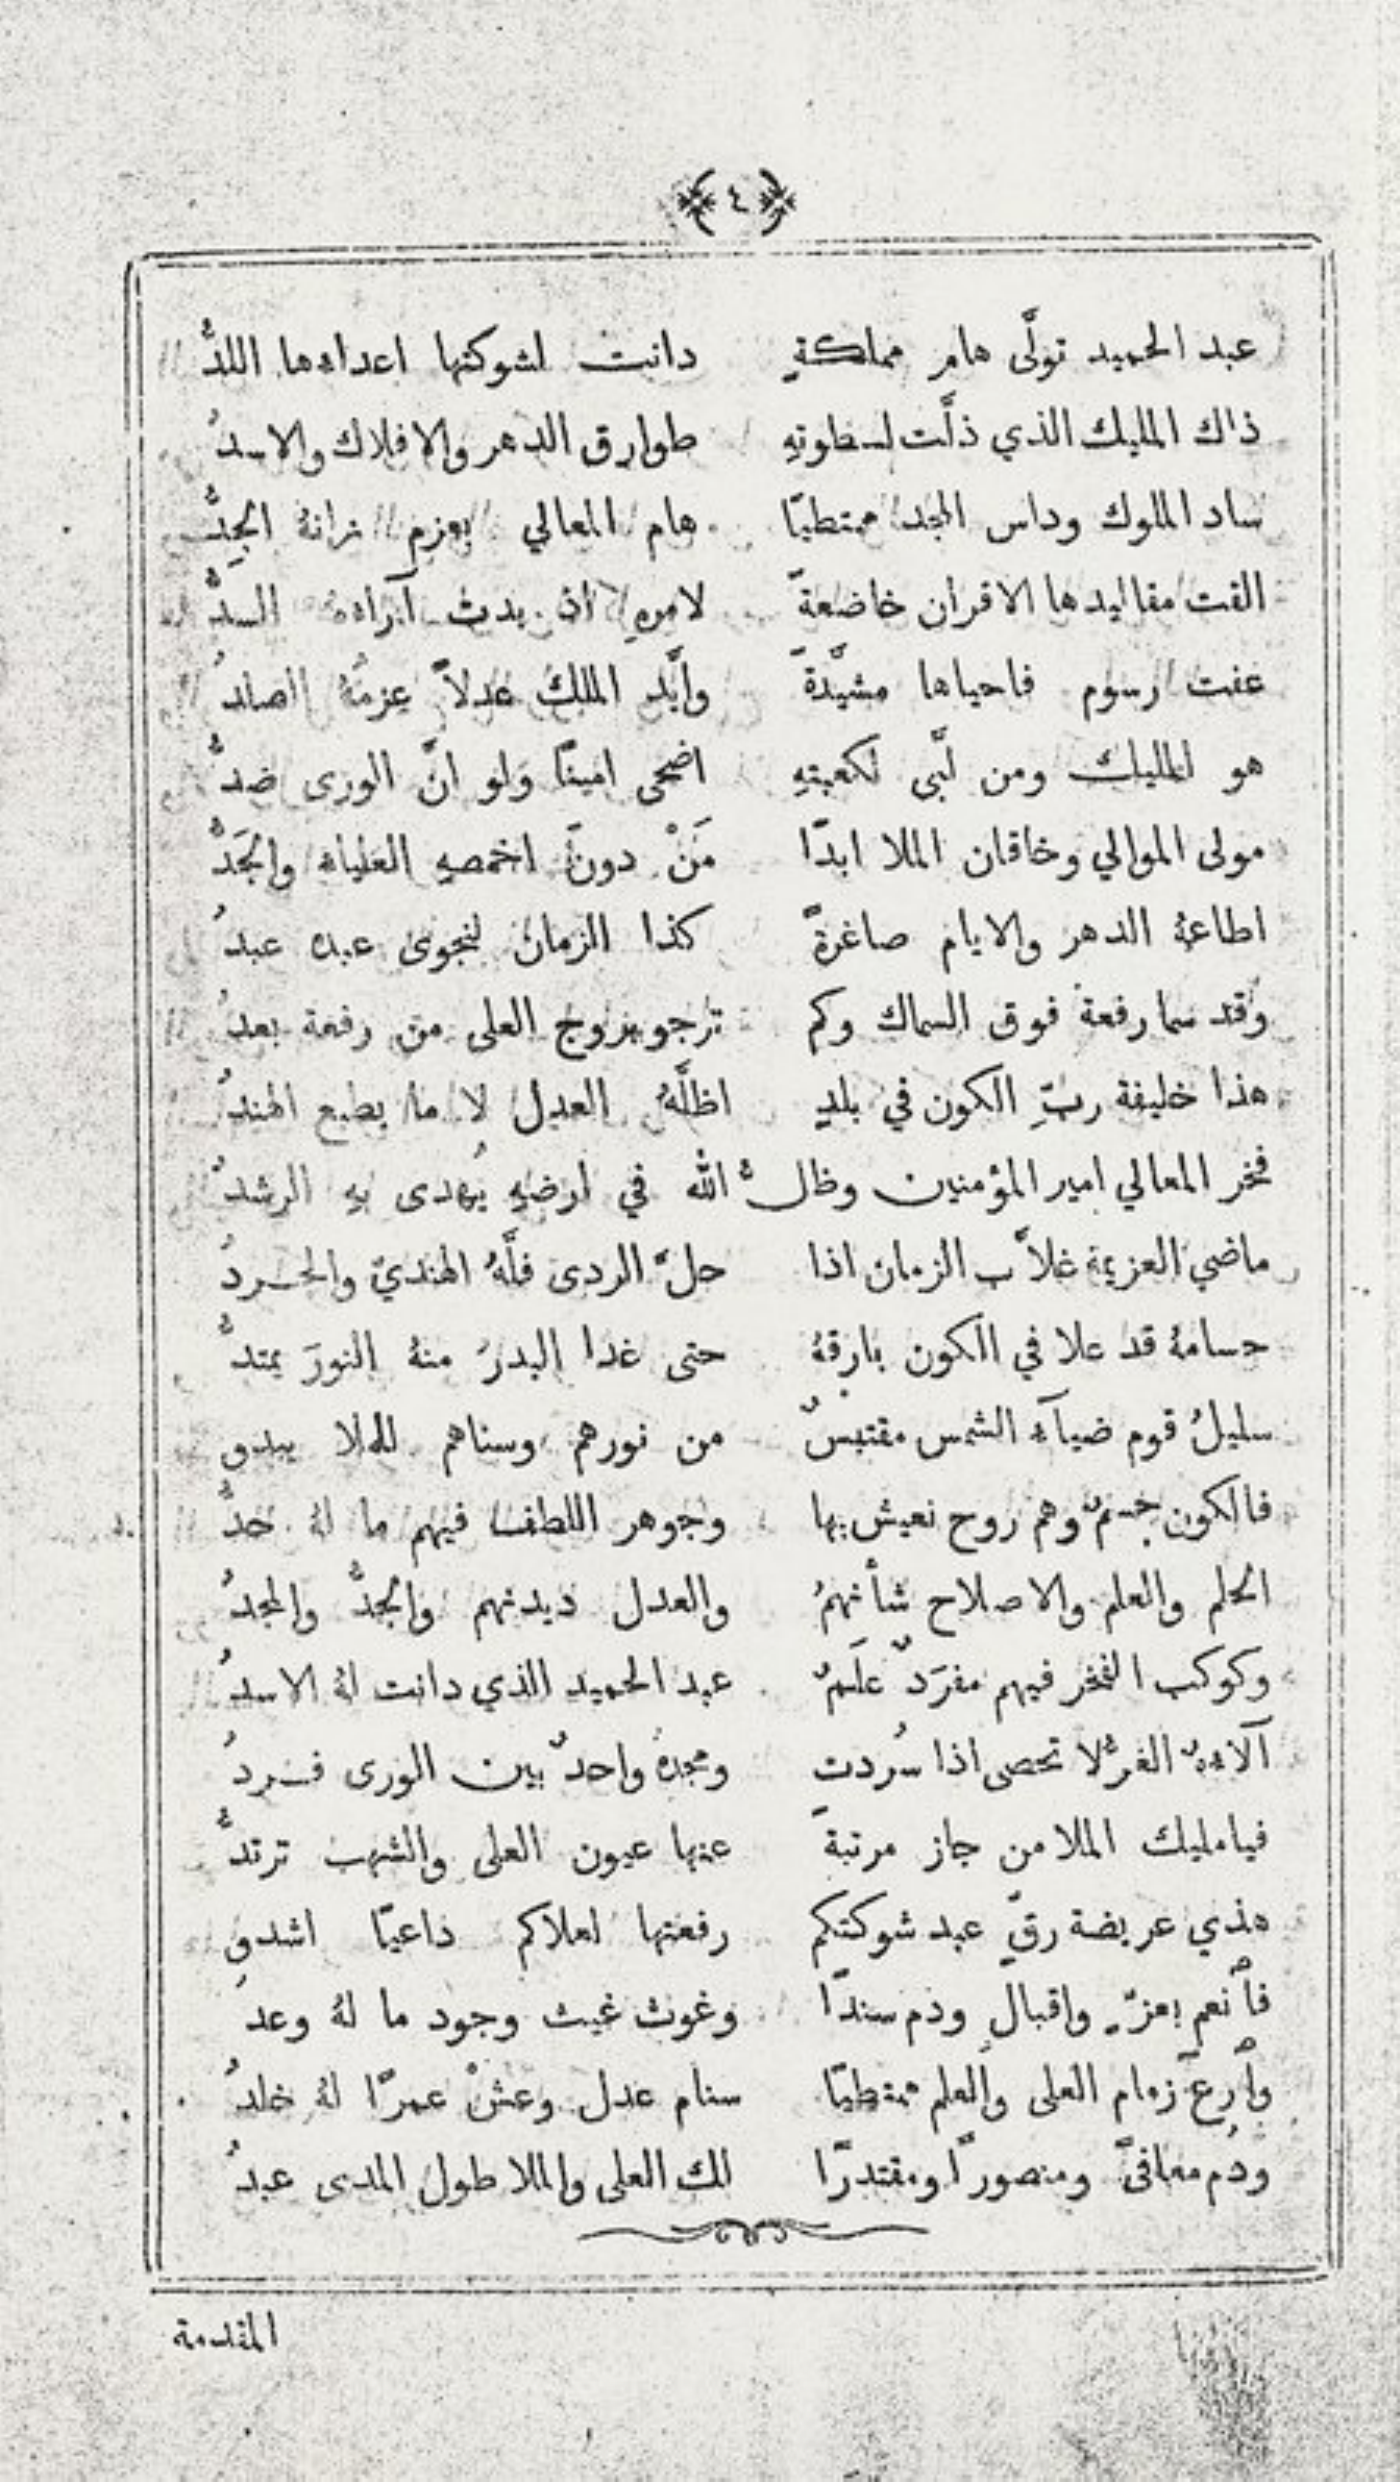 ﴿ ٤ ﴾
عبد الحميد تولَّى هام مملكةٍ دانت لشوكتها اعداءها اللدُّ
ذاك المليك الذي ذلَّت لسطوتهِ طوارق الدهر والافلاك والاسدُ
ساد الملوك وداس المجد ممتطيًا هام المعالي بعزم زانهُ الجِدُّ
القت مقاليدها الاقران خاضعةً لامرهِ اذ بدت آراءهُ السدُّ
عفت رسوم فاحياها مشيَّدةً وايَّد الملك عدلاً عزمهُ الصلدُ
هو المليك ومن لبَّى لكعبتهِ اضحى امينًا ولو انَّ الورى ضدُّ
مولى الموالي وخاقان الملا ابدًا مَنْ دونَ اخمصهِ العلياء والجَدُّ
اطاعهُ الدهر والايام صاغرةً كذا الزمان لنجوى عبده عبدُ
وقد سما رفعة فوق السماك وكم ترجو بروج العلى من رفعة بعدُ
هذا خليفة ربِّ الكون في بلدٍ اظلَّهُ العدل لا ما يطبع الهندُ
فخر المعالي امير المؤمنين وظلُّ الله في ارضهِ يُهدى بهِ الرشدُ
ماضي العزيمة غلاَّب الزمان اذا حلَّ الردى فلَّهُ الهنديّ والجردُ
حسامهُ قد علا في الكون بارقهُ حتى غدا البدرُ منهُ النورَ يمتدُّ
سليلُ قوم ضياَء الشمس مقتبسٌ من نورهم وسناهم للملا يبدو
فالكون جسمٌ وهم روح نعيش بها وجوهر اللطف فيهم ما لهُ حدُّ
الحلم والعلم والاصلاح شأنهمُ والعدل ديدنهم والجدُّ والمجدُ
وكوكب الفخر فيهم مفرَدٌ علَمٌ عبد الحميد الذي دانت لهُ الاسدُ
آلاءهُ الغرُّ لا تحصى اذا سُردت ومجدهُ واحدٌ بين الورى فردُ
فيا مليك الملا من جاز مرتبةً عنها عيون العلى والشهب ترتدُّ
هذي عريضة رقّ عبد شوكتكم رفعتها لعلاكم داعيًا اشدو
فأنعم بعزّ واقبالٍ ودم سندًا وغوث غيث وجود ما لهُ وعدُ
وأرعَ زمام العلى والعلم ممتطيًا سنام عدل وعشْ عمرًا لهُ خلدُ
ودُم معافىً ومنصورًا ومقتدرًا لك العلى والملا طول المدى عبدُ
المقدمة